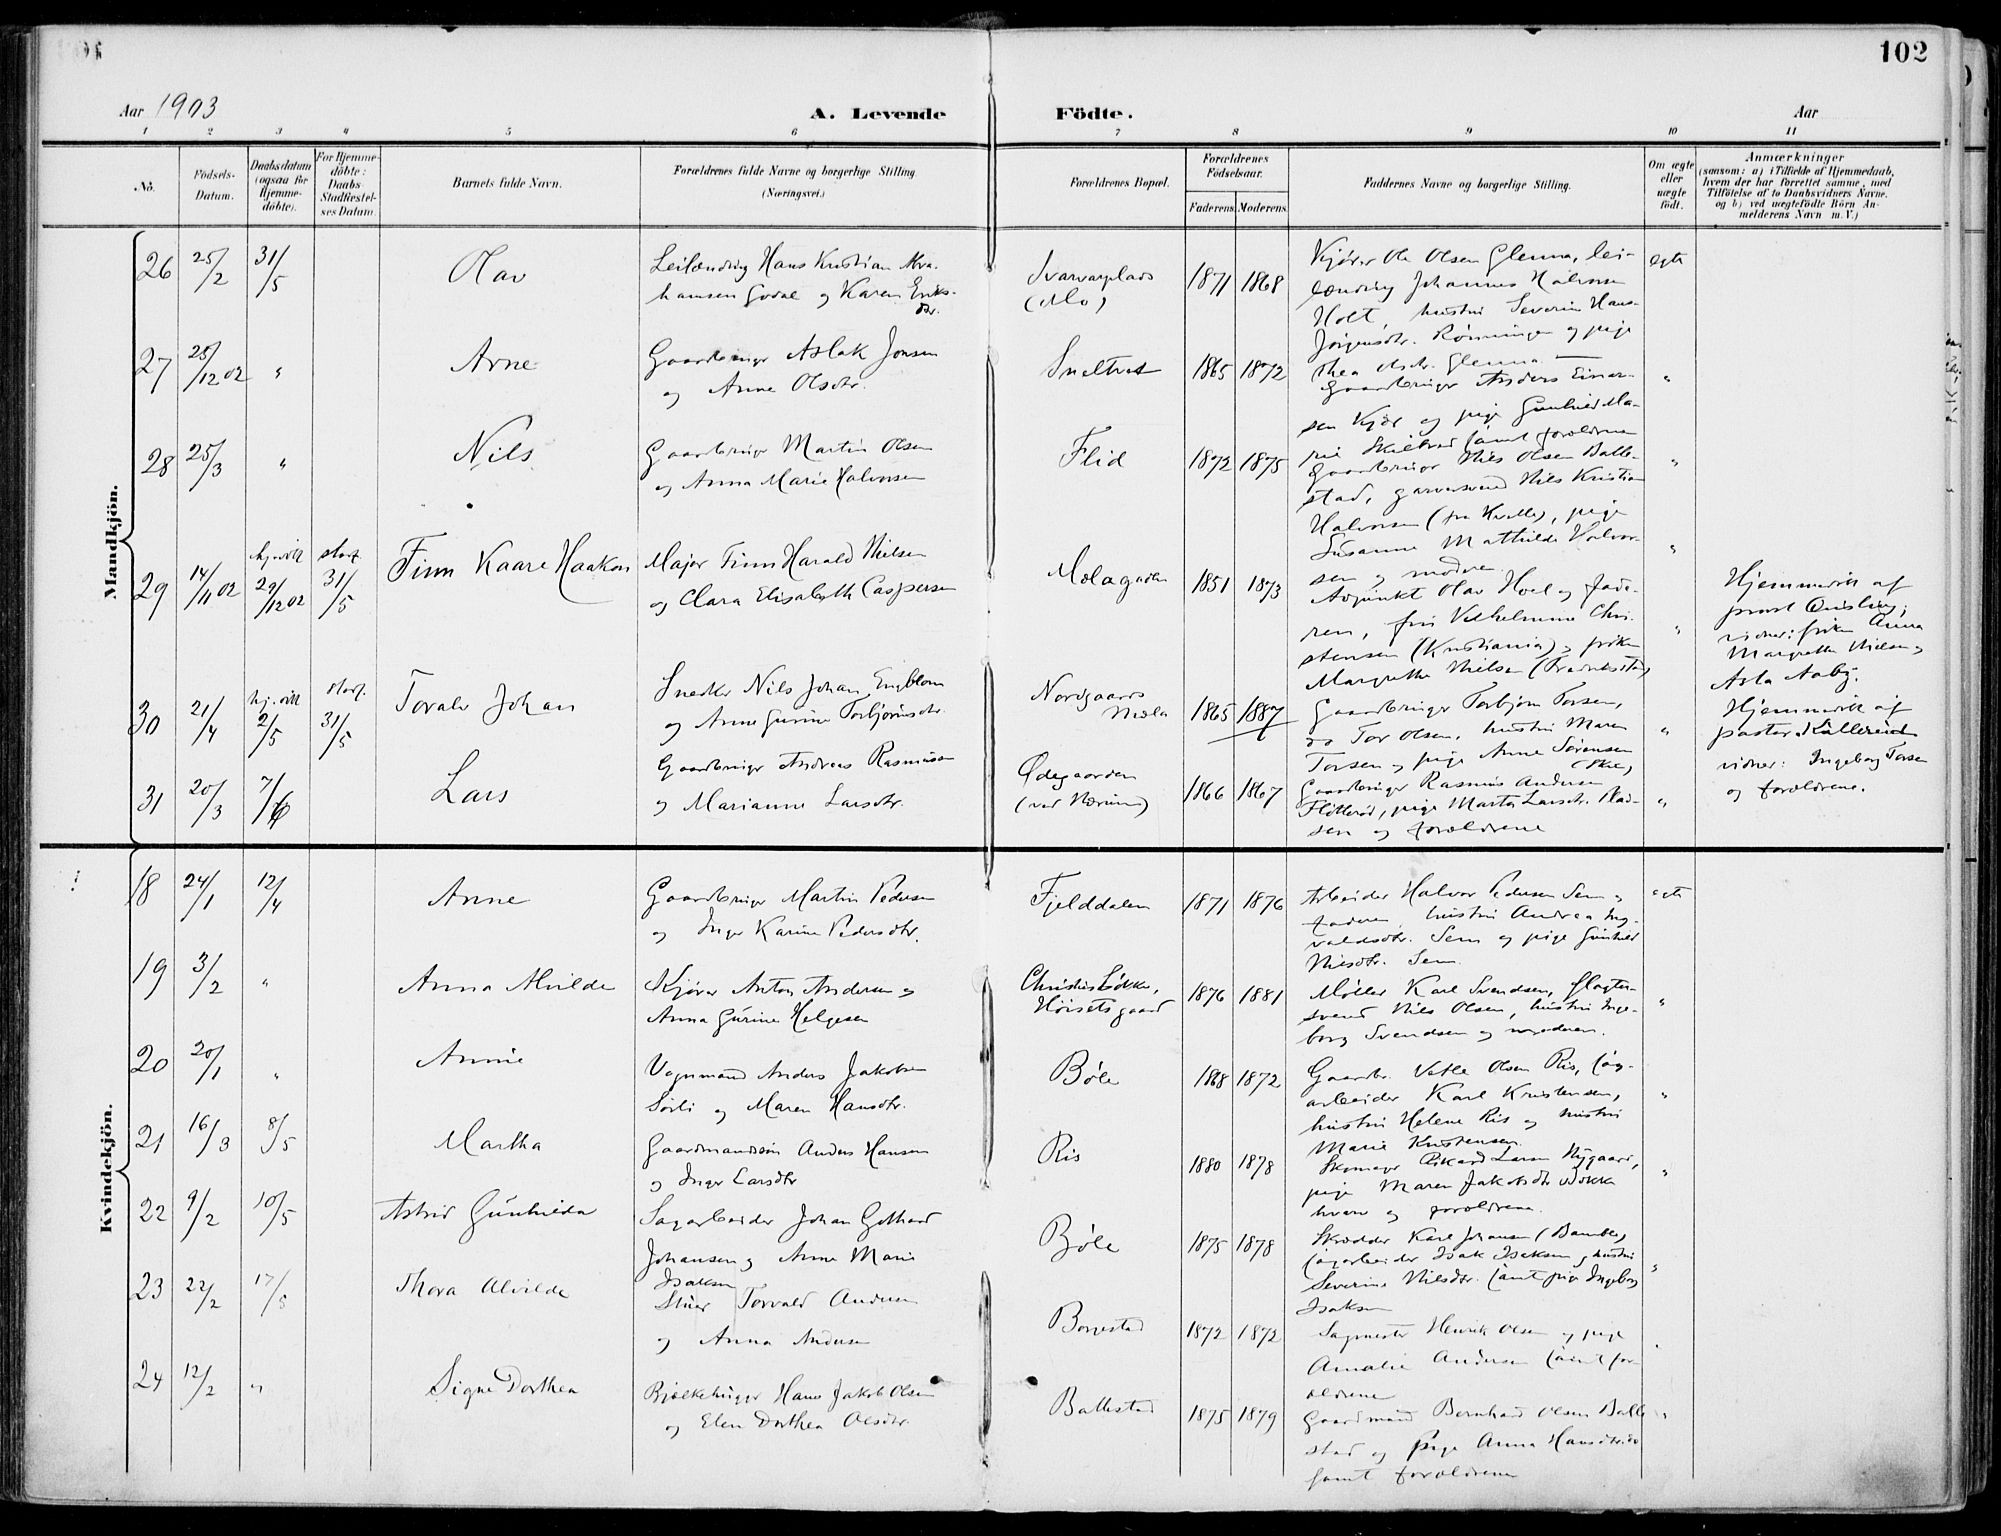 102
Aar 1903
A. Levende Födte.
Aar
1 2 3 4 5 6 7 8 9 10 11
No.
Födsels-Datum.
Daabsdatum (ogsaa for Hjemme-döbte).
For Hjemme-döbte: Daabs-Stadfæstel-ses Datum.
Barnets fulde Navn.
Forældrenes fulde Navne og borgerlige Stilling (Næringsvei.)
Forældrenes Bopæl.
Forældrenes Födselsaar.
Faderens Moderens
Faddernes Navne og borgerlige Stilling.
Om ægte eller uægte födt.
Anmærkninger
(saasom: a) i Tilfælde af Hjemmedaab, hvem der har forrettet samme, med Tilföielse af to Daabsvidners Navne, og b) ved uægtefödte Börn An-melderens Navn m. V.)
Mandkjön.
26 25/2 31/5 Olav
Leilænding Hans Kristian
hansen Godal og Karen Eriks-
dtr.
(Mo)
1871 1868
Kjörer Ole Olsen Glenna, lei-
lænding Johannes Halvorsen
Holt, hustru Severine Hans
Jörgensdtr. Rönningen og pige
Thea Olsdtr. Glenna.
egte
27 25/12 02 " Arne
Gaardbruger Aslak Jonsen
og Anne Olsdtr.
Sneltvet
1865 1872
Gaardbruger Anders Einar-
sen Kjær og pige Gunhild Ma-
rie samt forældrene
"
28 25/3 " Nils
Gaardbruger Martin Olsen
og Anna Marie Halvorsen
Flid
1872 1875
Gaardbruger Nils Olsen Balle-
stad, garversvend Nils Kristian
Halvorsen, pige
Susanne Mathilde Halvor-
sen og moderen
"
29 14/11 02 hj.döbt 29/12 02 stadf. 31/5 Finn Kaare Haakon
Major Finn Harald Nielsen
og Clara Elisabeth Caspersen
Mælagaden
1851 1873
Adjunkt Olav Hoel og fade-
ren, fru Vilhelmine Chri-
stensen (Kristiania), frøken
Margrethe Nielsen (Fredrikstad)
"
Hjemmedöbt af
provst Quisling;
vidner: frøken Anna
Margrethe Nielsen og
Asta Aaby.
30 21/4 hj.döbt 2/5 stadf. 31/5 Toralv Johan
Snedker Nils Johan Engblom
og Anne Gurine Torbjörnsdtr.
Nordgaards
Mæla
1865 1887
Gaardbruger Torbjörn Torsen,
do Tor Olsen, hustru Maren
Torsen og pige Anne Sörensen
(Skien)
"
Hjemmedöbt af
pastor
vidner: Ingeborg Torsen
og forældrene.
31 20/3 7/6 Lars
Gaardbruger Andreas Rasmussen
og Marianne Larsdtr.
Ødegaarden
(ved Nærum)
1866 1867
Gaardbruger Rasmus Andersen
Flitteröd, pige Marta Larsdtr. Mad-
sen og forældrene
"
Kvindekjön.
18 24/1 12/4 Anne
Gaardbruger Martin Pedersen
og Inger Karine Pedersdtr.
Fjelddalen
1871 1876
Arbeider Halvor Pedersen Sem,
faderen, hustru Andrea Ing-
valdsdtr. Sem og pige Gunhild
Nilsdtr. Sem.
egte
19 3/2 " Anna Alvilde
Kjörer Anton Andersen og
Anna Gurine Helgesen
Christiesløkke,
Höisets gaard
1876 1881
Møller Karl Svendsen, slagter-
svend Nils Olsen, hustru Inge-
borg Svendsen og moderen.
"
20 20/1 " Annie
Vognmand Anders Jakobsen
Sörli og Maren Hansdtr.
Böle
1868 1872
Gaardbr. Vetle Olsen Ris, sag-
arbeider Karl Kristensen,
hustru Helene Ris og hustru
Marie Kristensen.
"
21 16/3 8/5 Martha
Gaardmandssön Anders Hansen
og Inger Larsdtr
Ris
1880 1878
Skomager Rikard Larsen Nygaard,
pige Maren Jakobsdtr
og forældrene.
"
22 9/2 10/5 Astrid Gunhilda
Sagarbeider Johan Gothard
Johansen og Anne Marie
Isaksen
Böle
1875 1878
Skrædder Karl Johansen (Bamble),
sagarbeider Isak Isaksen, hustru
Severine Nilsdtr. samt pige Ingeborg
Isaksen
"
23 22/2 17/5 Thora Alvilde
Torvald Andersen
og Anna Andersen
Borgestad
1872 1872
Sagmester Henrik Olsen og pige
Amalie Andersen samt for-
ældrene
"
24 12/2 " Signe Dorthea
Bjælkehugger Hans Jakob Olsen
og Elen Dorthea Olsdtr.
Ballestad
1875 1879
Gaardmand Bernhard Olsen Balle
stad og pige Anna Hansdtr. do
samt forældrene
"